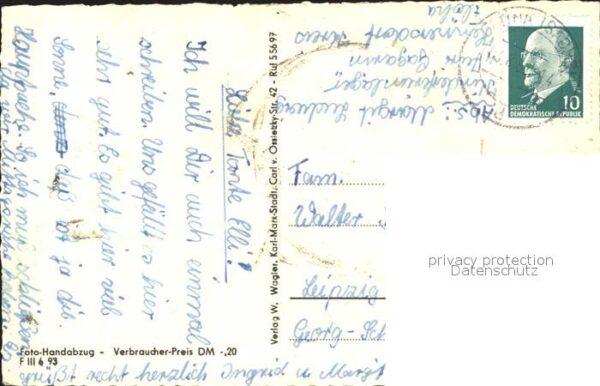 Liebe Tante Elli!
Ich will Dir auch einmal
schreiben. Uns gefällt es hier
sehr gut. Es gibt hier viel
Sonne, das ist ja die
Hauptsache. So ich muß schließen
grüßt recht herzlich Ingrid u Margit
Abs.: Margit
"Kinderferienlager"
Juri Gagarin
Hennersdorf Kreis
Flöha
DEUTSCHE
DEMOKRATISCHE REPUBLIK
10
Fam.
Walter
Leipzig
Georg-
privacy protection
Datenschutz
Verlag W. Wagler, Karl-Marx-Stadt, Carl v. Ossietzky-Str. 42 - Ruf 5 56 97
Foto-Handabzug - Verbraucher-Preis DM -,20
F III 6 93